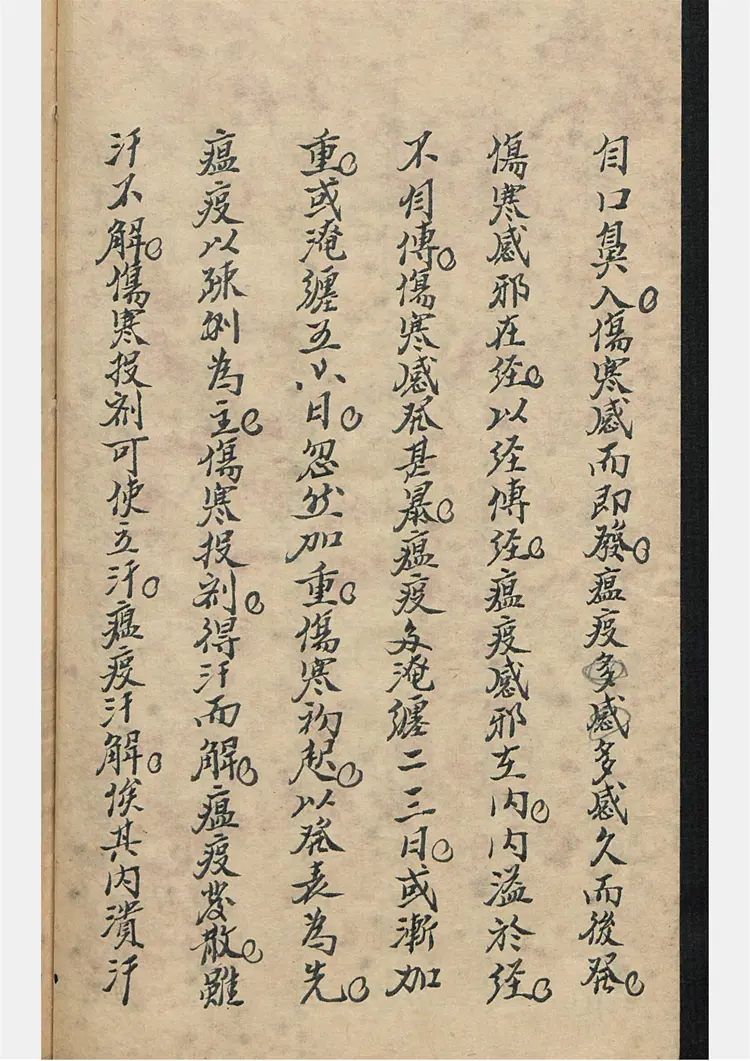 自口鼻入。傷寒感而即發。瘟疫多感多感久而後發。
傷寒感邪在経。以経傳経。瘟疫感邪在内。内溢於経。
不自傳。傷寒感發甚暴。瘟疫多淹纏二三日。或漸加
重。或淹纏五六日。忽然加重。傷寒初起。以發表為先。
瘟疫以疎利為主。傷寒投剂。得汗而解。瘟疫發散。雖
汗不解。傷寒投剂可使立汗。瘟疫汗解。俟其内潰汗